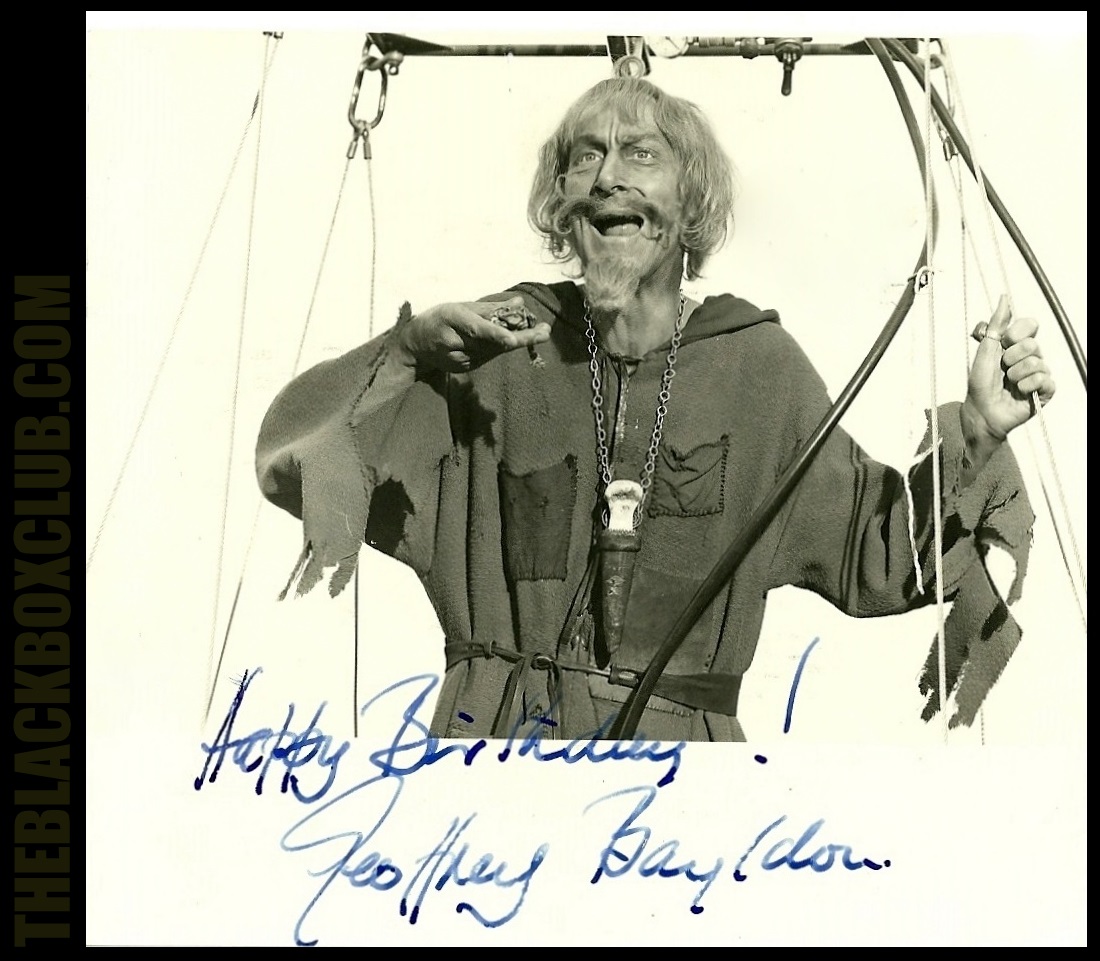 THEBLACKBOXCLUB.COM
Happy Birthday!
Geoffrey Bayldon.